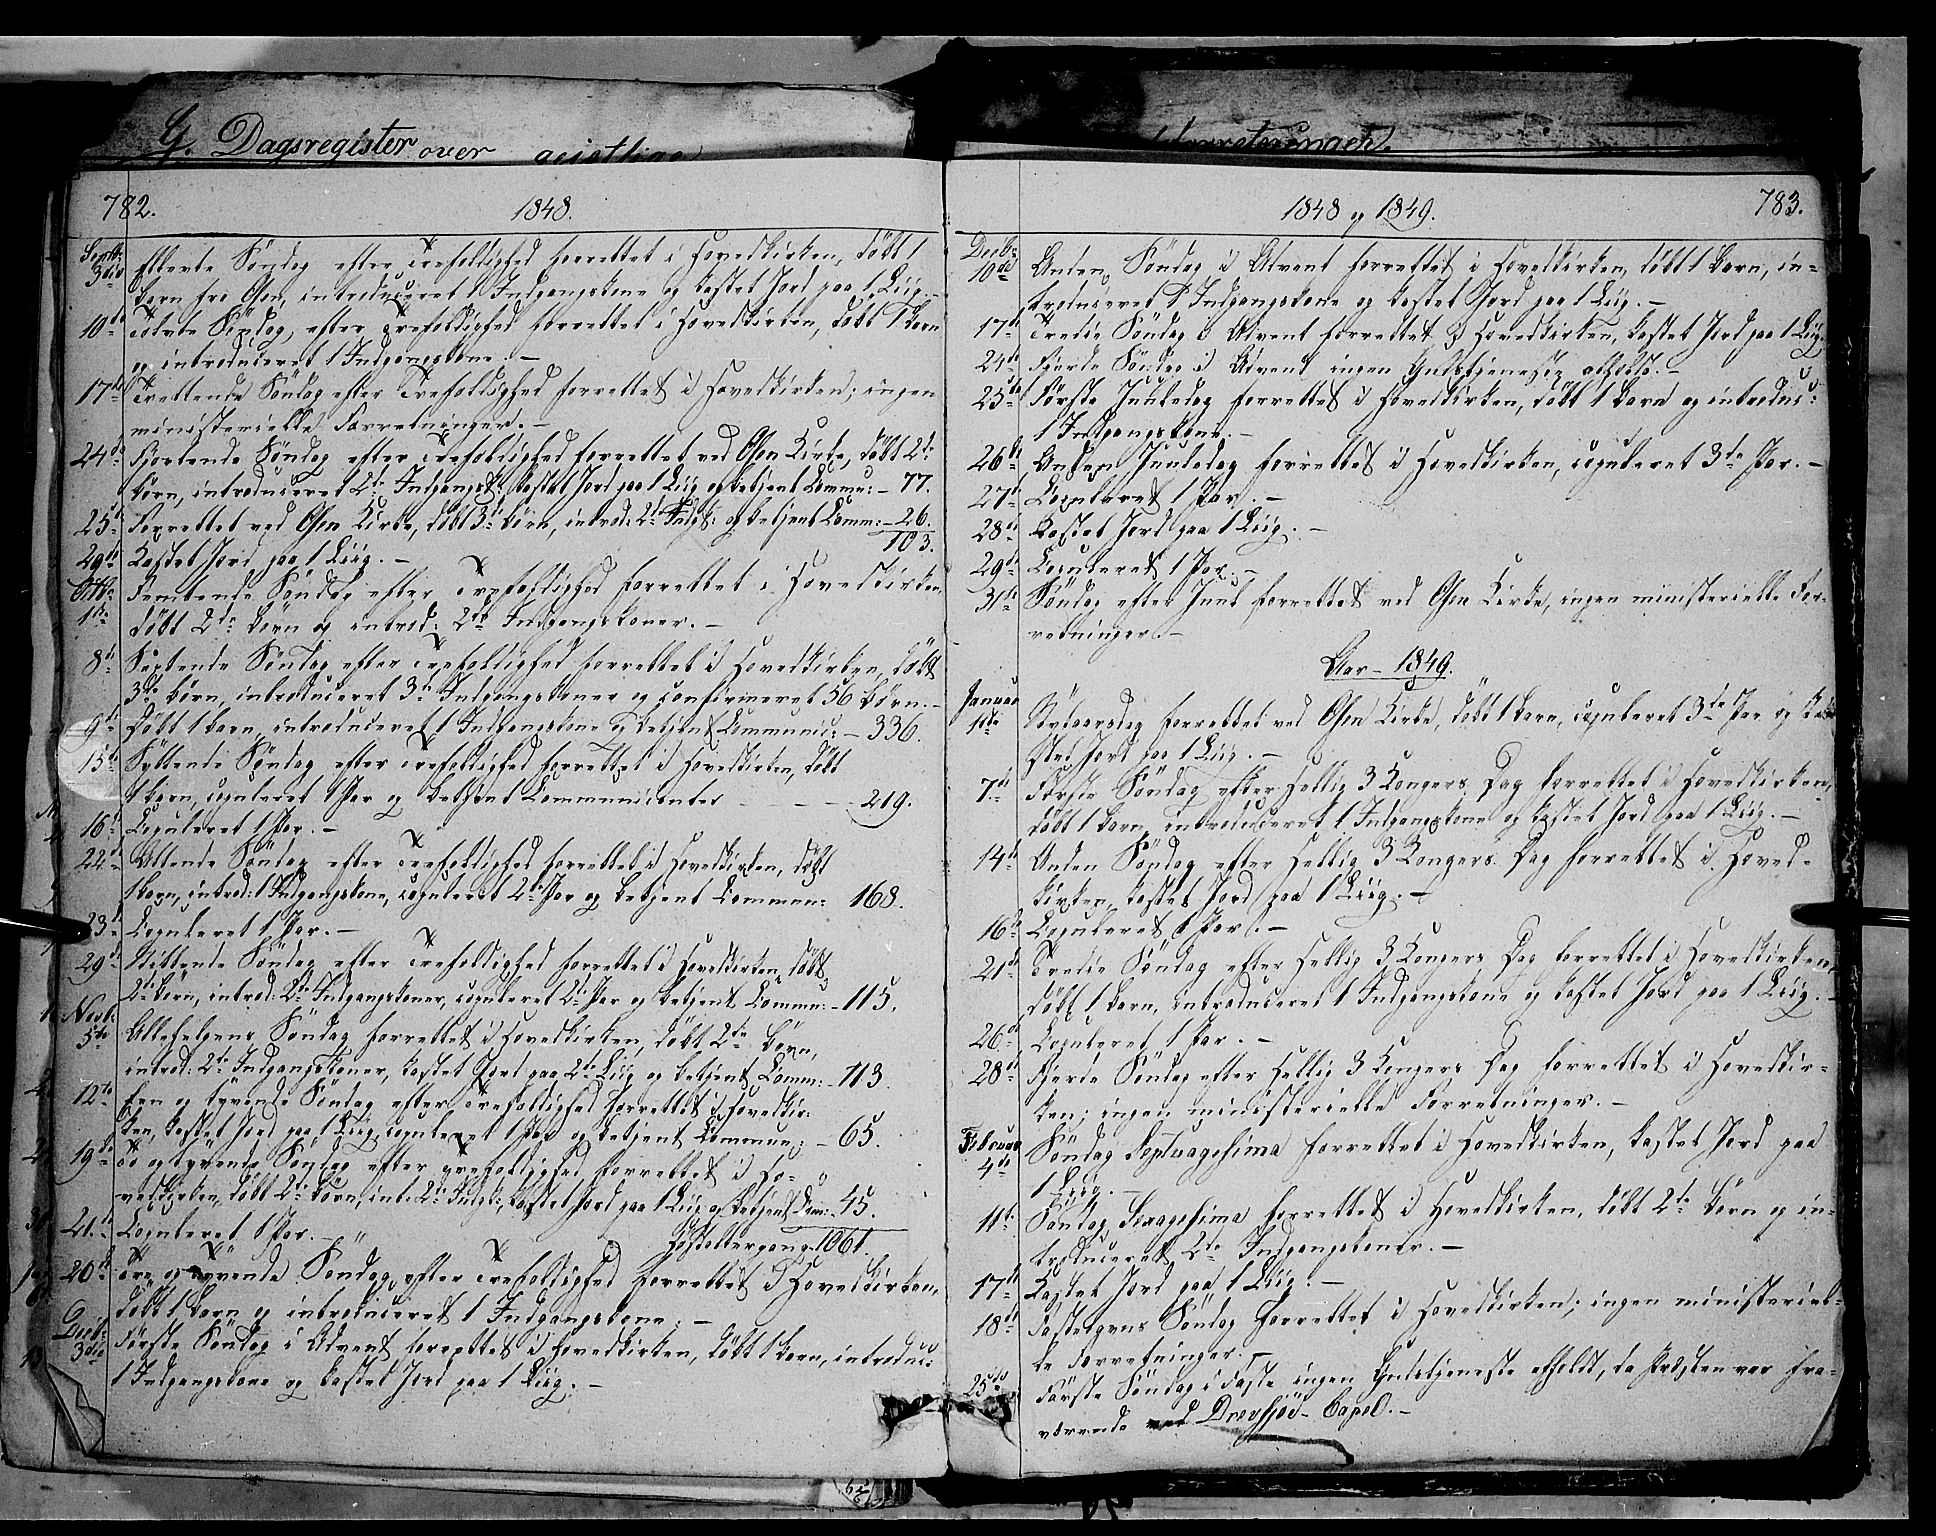 G. Dagsregister over geistlige Forretninger.
782.
1848.
Septb: 3die Ellevte Søndag efter Trefoldighed forrettet i Hovedkirken, døbt 1
Barn fra Osen, introduceret 1 Indgangskone og kastet Jord paa 1 Liig.
10de Tolvte Søndag efter Trefoldighed forrettet i Hovedkirken, døbt 1 Barn
og introduceret 1 Indgangskone. -
17de Trettende Søndag efter Trefoldighed forrettet i Hovedkirken; ingen
ministerielle Forretninger. -
24de Fjortende Søndag efter Trefoldighed forrettet ved Osen Kirke, døbt 2de
Børn, introduceret 2de Indgangsk: kastet Jord paa 1 Liig og betjent Commu: - 77.
25de Forrettet ved Osen Kirke, døbt 3de Børn, introd: 2de Indgk: og betjent Comm: - 26.
103.
29de Kastet Jord paa 1 Liig. -
Octb: 1ste Femtende Søndag efter Trefoldighed forrettet i Hovedkirken
døbt 2de Børn og introd: 2de Indgangskoner. -
8de Sextende Søndag efter Trefoldighed forrettet i Hovedkirken, døbt
3de Børn, introduceret 3de Indgangskoner og confirmeret 56 Børn. -
9de Døbt 1 Barn, introduceret 1 Indgangskone og betjent Communic: - 336.
15de Syttende Søndag efter Trefoldighed forrettet i Hovedkirken, døbt
1 Barn, copuleret 1 Par og betjent Communicanter - - - - 219.
16de Copuleret 1 Par. -
22de Attende Søndag efter Trefoldighed forrettet i Hovedkirken, døbt
1 Barn, introd: 1 Indgangskone, copuleret 2de Par og betjent Commun: 168.
23de Copuleret 1 Par. -
29de Nittende Søndag efter Trefoldighed forrettet i Hovedkirken, døbt
2de Børn, introd: 2de Indgangskoner, copuleret 2de Par og betjent Commu: - 115.
Novb: 5te Allehelgens Søndag forrettet i Hovedkirken, døbt 2de Børn,
introd: 2de Indgangskoner, kastet Jord paa 2de Liig og betjent Comm: - 113.
12te Een og tyvende Søndag efter Trefoldighed forrettet i Hovedkir-
ken, kastet Jord paa 1 Liig, copuleret 1 Par og betjent Commun: - 65.
19de To og tyvende Søndag efter Trefoldighed forrettet i Ho-
vedkirken, døbt 2de Børn, int: 2de Indgk:, kastet Jord paa 1 Liig og betjent Com: - 45.
21de Copuleret 1 Par. -
1061.
26de Tre og tyvende Søndag efter Trefoldighed forrettet i Hovedkirken,
døbt 1 Barn og introduceret 1 Indgangskone. -
Decb: 3die Første Søndag i Advent forrettet i Hovedkirken, døbt 1 Barn, introduc:
1 Indgangskone og kastet Jord paa 1 Liig. -
1848 og 1849.
783.
Decb: 10de Anden Søndag i Advent forrettet i Hovedkirken, døbt 1 Barn, in-
troduceret 1 Indgangskone og kastet Jord paa 1 Liig. -
17de Tredie Søndag i Advent forrettet i Hovedkirken, kastet Jord paa 1 Liig.
24de Fjerde Søndag i Advent ingen Gudstjeneste afholdt. -
25de Første Juuledag forrettet i Hovedkirken, døbt 1 Barn og introduc:
1 Indgangskone. -
26de Anden Juuledag forrettet i Hovedkirken, copuleret 3de Par. -
27de Copuleret 1 Par. -
28de Kastet Jord paa 1 Liig. -
29de Copuleret 1 Par. -
31te Søndag efter Juul forrettet ved Osen Kirke, ingen ministerielle For-
retninger. -
Aar - 1849.
Januar 1ste Nytaarsdag forrettet ved Osen Kirke, døbt 1 Barn, copuleret 3de Par og ka-
stet Jord paa 1 Liig. -
7de Første Søndag efter Hellig 3 Kongers Dag forrettet i Hovedkirken,
døbt 1 Barn, introduceret 1 Indgangskone og kastet Jord paa 1 Liig. -
14de Anden Søndag efter Hellig 3 Kongers Dag forrettet i Hoved-
kirken, kastet Jord paa 1 Liig. -
16de Copuleret 1 Par. -
21de Tredie Søndag efter Hellig 3 Kongers Dag forrettet i Hovedkirken,
døbt 1 Barn, introduceret 1 Indgangskone og kastet Jord paa 1 Liig. -
26de Copuleret 1 Par. -
28de Fjerde Søndag efter Hellig 3 Kongers Dag forrettet i Hovedkir-
ken; ingen ministerielle Forretninger. -
Februar 4de Søndag Septuagesima forrettet i Hovedkirken, kastet Jord paa
1 Liig. -
11te Søndag Sexagesima forrettet i Hovedkirken, døbt 2de Børn og in-
troduceret 2de Indgangskoner. -
17de Kastet Jord paa 1 Liig. -
18de Fastelavns Søndag forrettet i Hovedkirken; ingen ministeriel-
le Forretninger. -
25de Første Søndag i Faste ingen Gudstjeneste afholdt, da Præsten var fra-
værende ved Drevsjöe-Capel. -